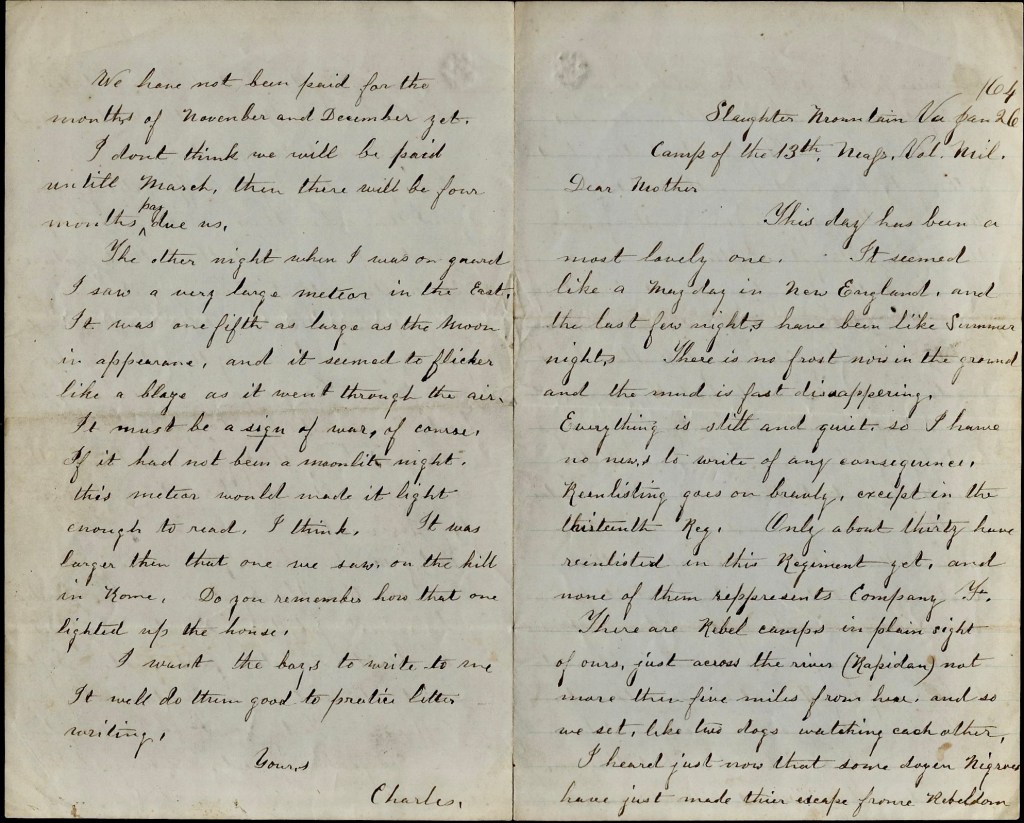 /64
Slaughter Mountain Va Jan 26
Camp of the 13th, Mass. Vol. Mil.
Dear Mother
This day has been a
most lovely one. It seemed
like a May day in New England, and
the last few nights have been like Summer
nights There is no frost now in the ground
and the mud is fast disappering.
Everything is still and quiet, so I have
no news to write of any consequence.
Reenlisting goes on bravly, except in the
thirteenth Reg. Only about thirty have
reinlisted in this Regiment yet, and
none of them reppresents Company F.
There are Rebel camps in plain sight
of ours, just across the river (Rapidan) not
more then five miles from here, and so
we set, like two dogs watching each other.
I heard just now that some dozen Nigroes
have just made thier escape frome Rebeldom
We have not been paid for the
months of November and December yet.
I dont think we will be paid
untill March, then there will be four
months pay due us.
The other night when I was on guard
I saw a very large meteor in the East.
It was one fifth as large as the Moon
in appearane, and it seemed to flicker
like a blaze as it went through the air.
It must be a sign of war, of course.
If it had not been a moonlite night,
this meteor would made it light
enough to read, I think. It was
larger then that one we saw, on the hill
in Rome. Do you remember how that one
lighted up the house.
I want the boys to write to me
It will do them good to pratice letter
writing.
Yours
Charles.